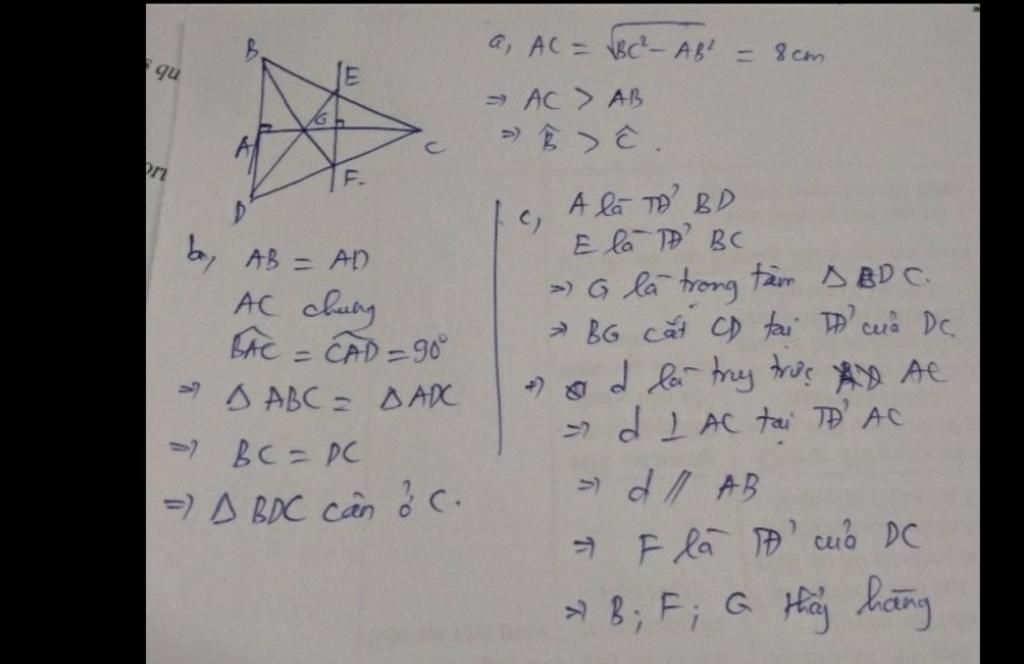 s qu
on
B
E
G
A
C
F.
D
a, AC = √BC² - AB² = 8cm
⇒ AC > AB
⇒ B̂ > Ĉ.
b, AB = AD
AC chung
B̂AC = ĈAD = 90°
⇒ Δ ABC = Δ ADC
⇒ BC = DC
⇒ Δ BDC cân ở C.
c, A là TĐ' BD
E là TĐ' BC
⇒ G là trọng tâm Δ BDC.
⇒ BG cắt CD tại TĐ' của DC
⇒ d là truy trực AC
⇒ d ⊥ AC tại TĐ' AC
⇒ d // AB
⇒ F là TĐ' của DC
⇒ B; F; G thẳy hàng